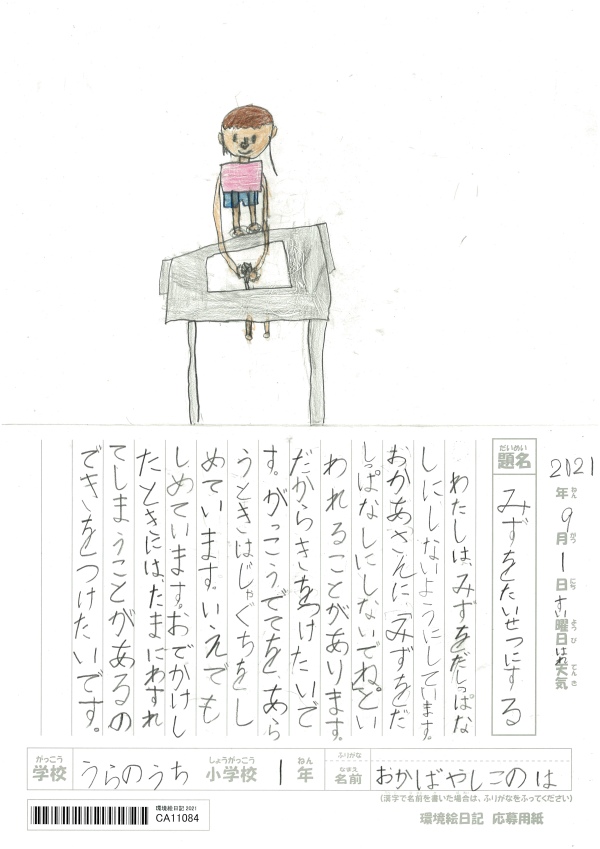 2021年9月1日すい曜日はれ天気
ねん がつ にち ようび てんき
だいめい
題名
みずをたいせつにする
わたしは、みずをだしっぱな
しにしないようにしています。
おかあさんに、「みずをだ
しっぱなしにしないでね。」とい
われることがあります。
だからきをつけたいで
す。がっこうでてを、あら
うときはじゃぐちをし
めています。いえでも
しめています。おでかけし
たときには、たまにわすれ
てしまうことがあるの
できをつけたいです。
がっこう しょうがっこう ねん なまえ ふりがな
学校 うらのうち 小学校 1年 名前 おかばやしこのは
(漢字で名前を書いた場合は、ふりがなをふってください)
環境絵日記 2021
CA11084
環境絵日記 応募用紙